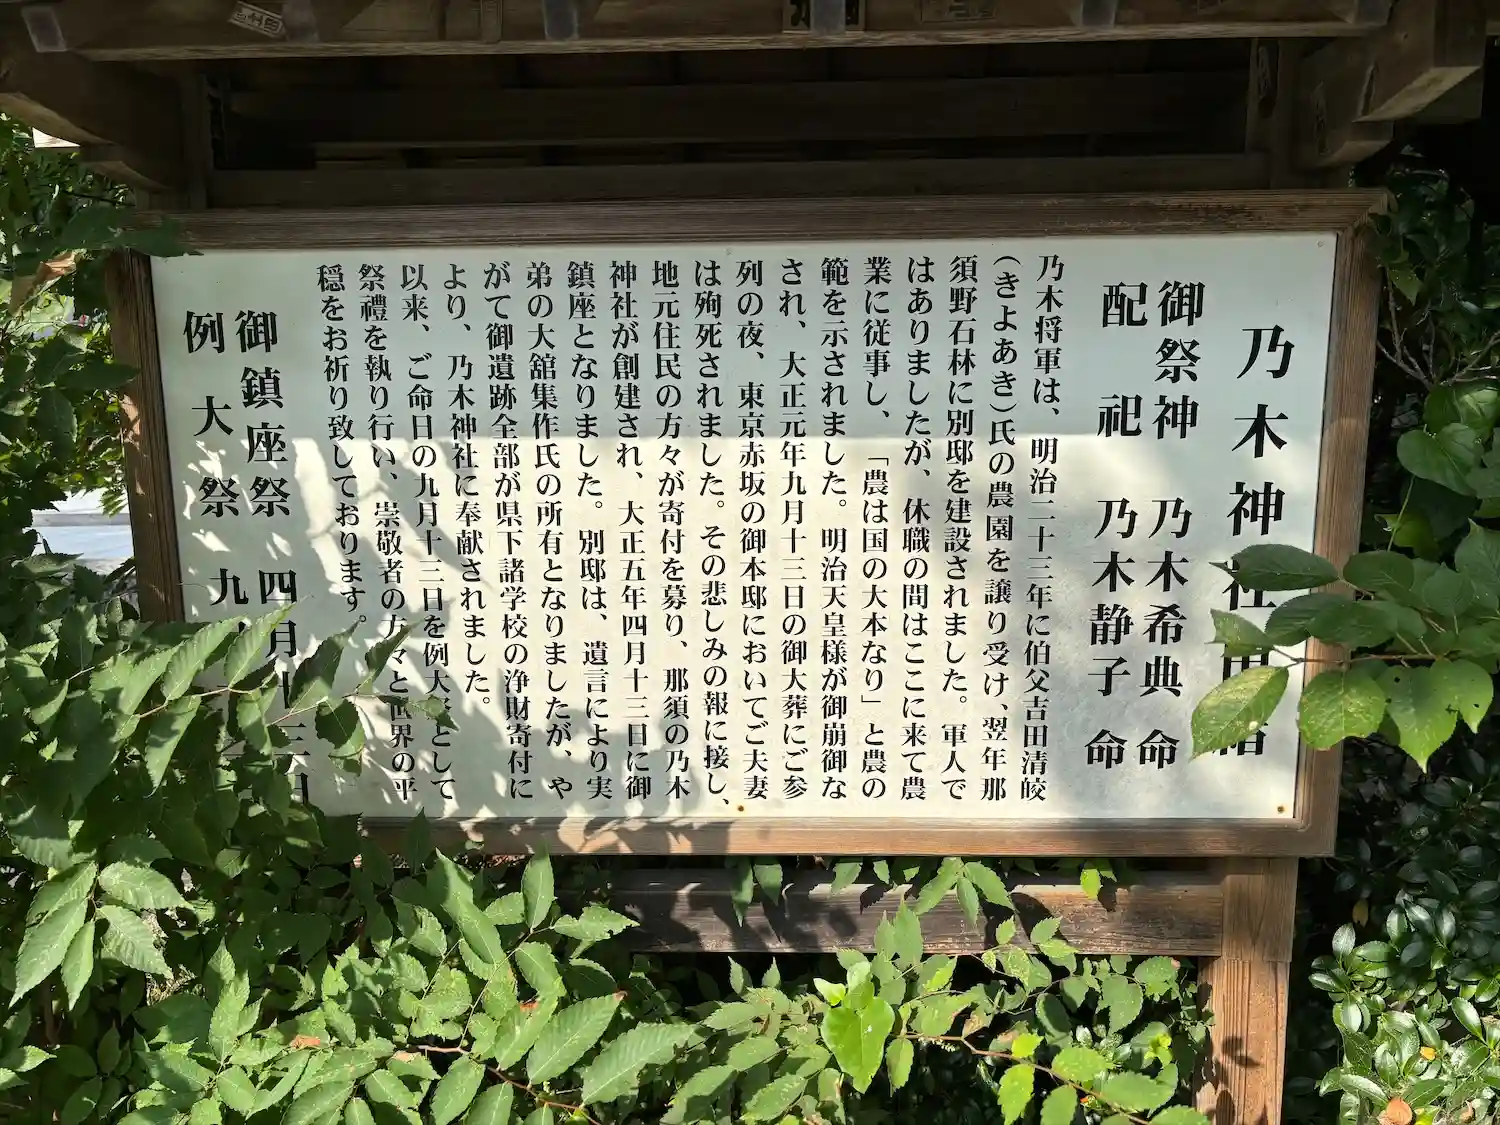 乃木神社由緒
御祭神　乃木希典　命
配　祀　乃木静子　命
乃木将軍は、明治二十三年に伯父吉田清皎
(きよあき)氏の農園を譲り受け、翌年那
須野石林に別邸を建設されました。軍人で
はありましたが、休職の間はここに来て農
業に従事し、「農は国の大本なり」と農の
範を示されました。明治天皇様が御崩御な
され、大正元年九月十三日の御大葬にご参
列の夜、東京赤坂の御本邸においてご夫妻
は殉死されました。その悲しみの報に接し、
地元住民の方々が寄付を募り、那須の乃木
神社が創建され、大正五年四月十三日に御
鎮座となりました。別邸は、遺言により実
弟の大舘集作氏の所有となりましたが、や
がて御遺跡全部が県下諸学校の浄財寄付に
より、乃木神社に奉献されました。
以来、ご命日の九月十三日を例大祭として
祭禮を執り行い、崇敬者の方々と世界の平
穏をお祈り致しております。
御鎮座祭　四月十三日
例　大　祭　九